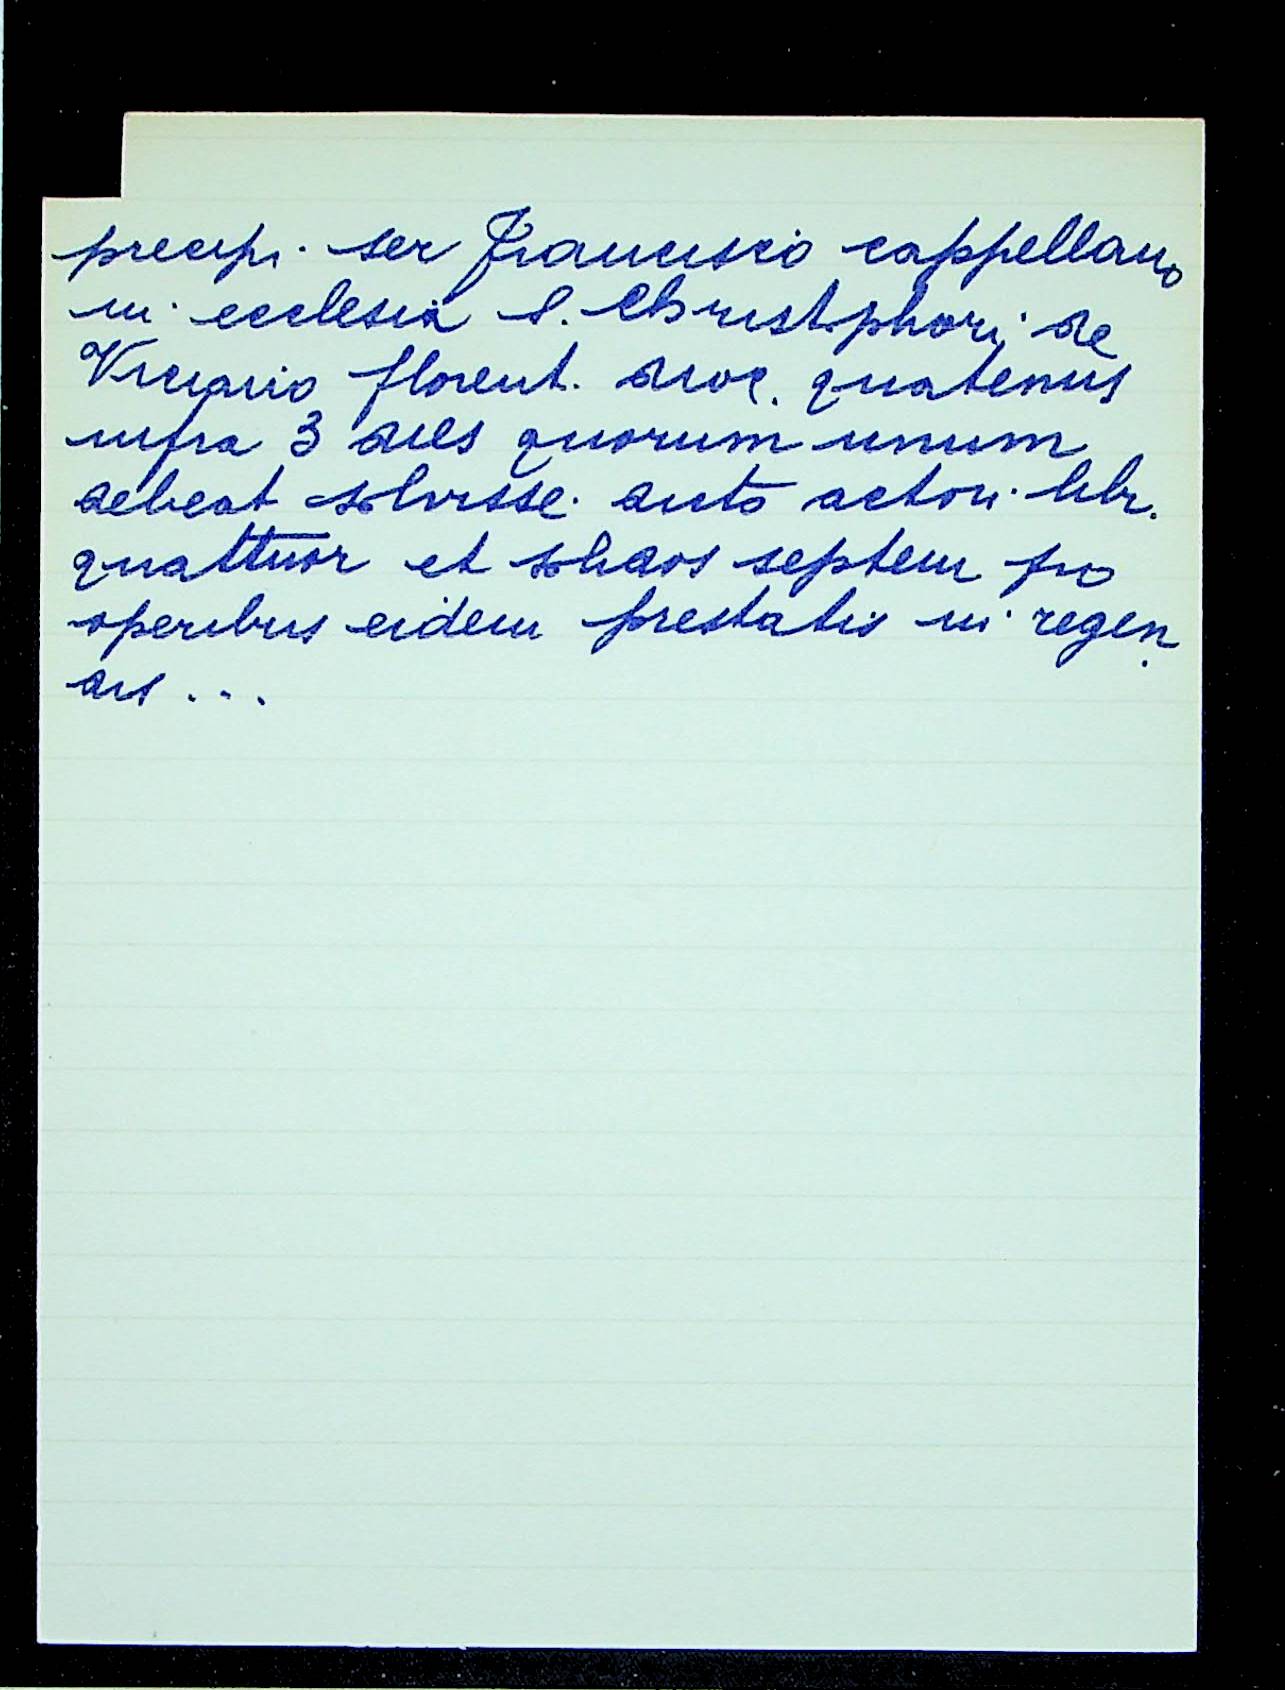 precipi ser Francischo cappellano
in ecclesia S. Christophori de
Viciario florent. dioc. quatenus
infra 3 dies quorum unum
debeat solvisse dicto actori libr.
quattuor et solidos septem pro
operibus eidem prestatis in regen
dis ...